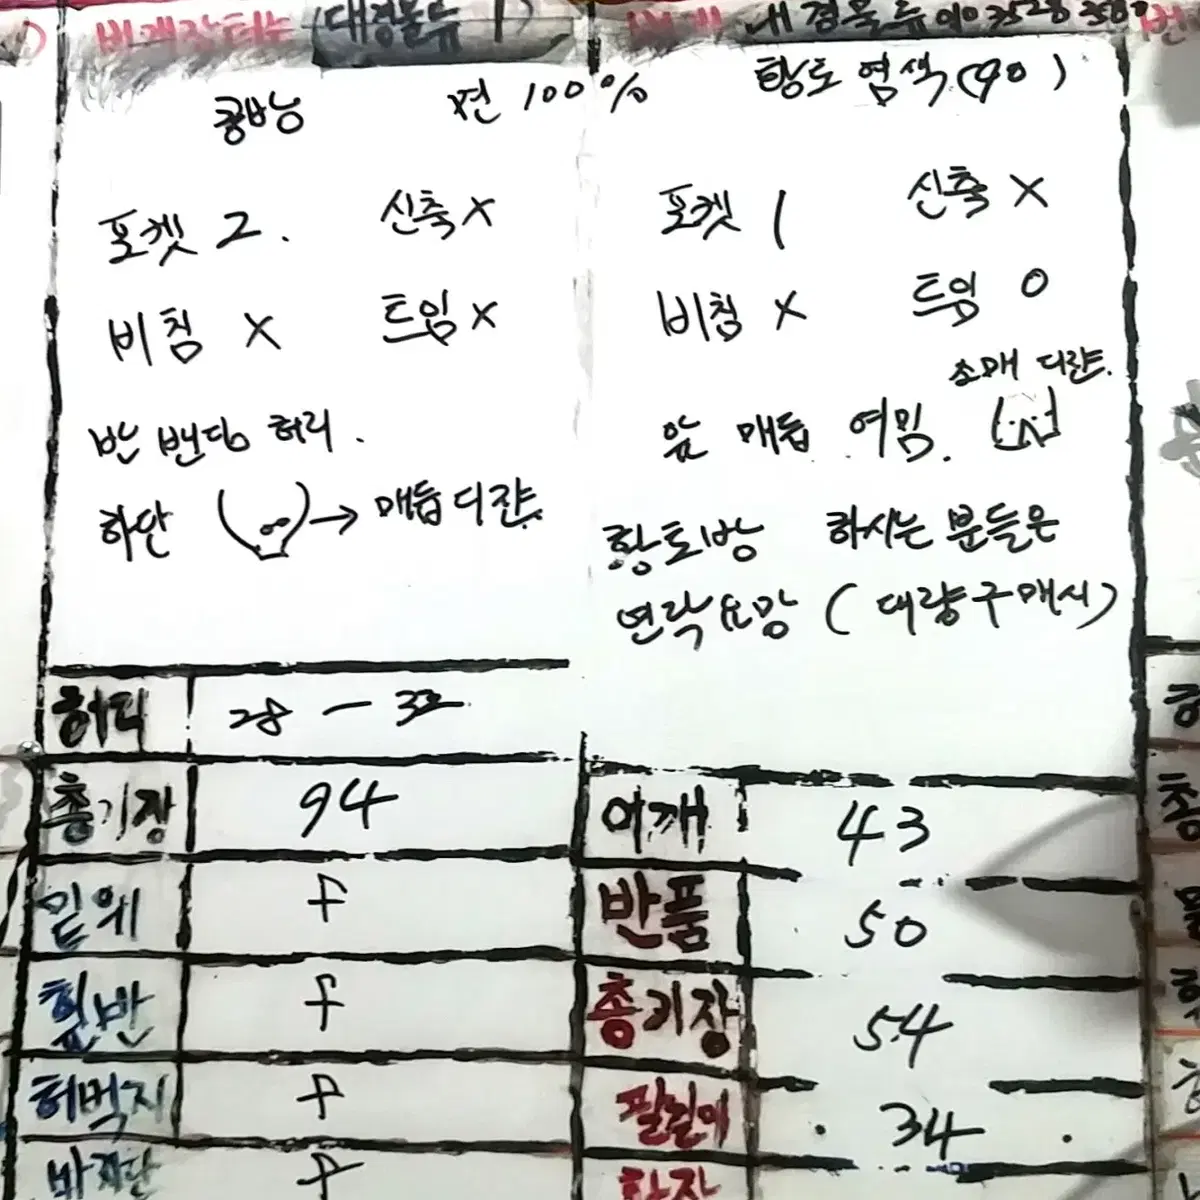 번개장터는 (대경물류)
대경물류 010 3528 358
번
콩밭 면 100% 황토 염색(90)
포켓 2. 신축 X
비침 X 트임 X
반 밴딩 허리.
하단 → 매듭 디쟌.
포켓 1 신축 X
비침 X 트임 O
소매 디쟌.
앞 매듭 여밈.
황토방 하시는 분들은
연락요망 (대량구매시)
허리 28 - 32
총기장 94
밑위 f
힢반 f
허벅지 f
바지단 f
어깨 43
반품 50
총기장 54
팔길이 34